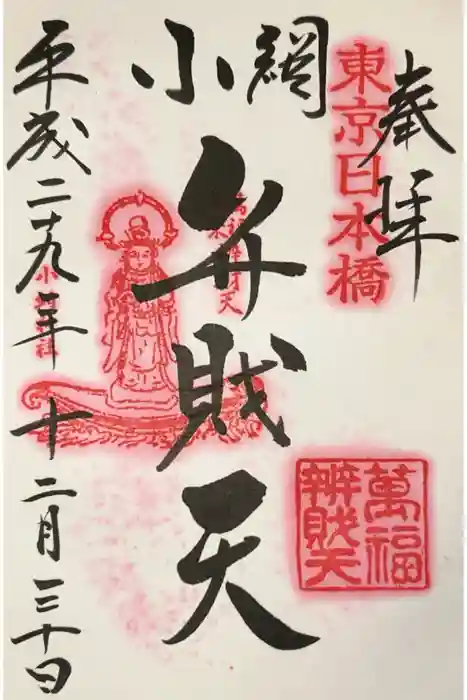 奉拝
東京日本橋
小網
弁財天
萬福
辨財天
平成二十九年十二月三十日